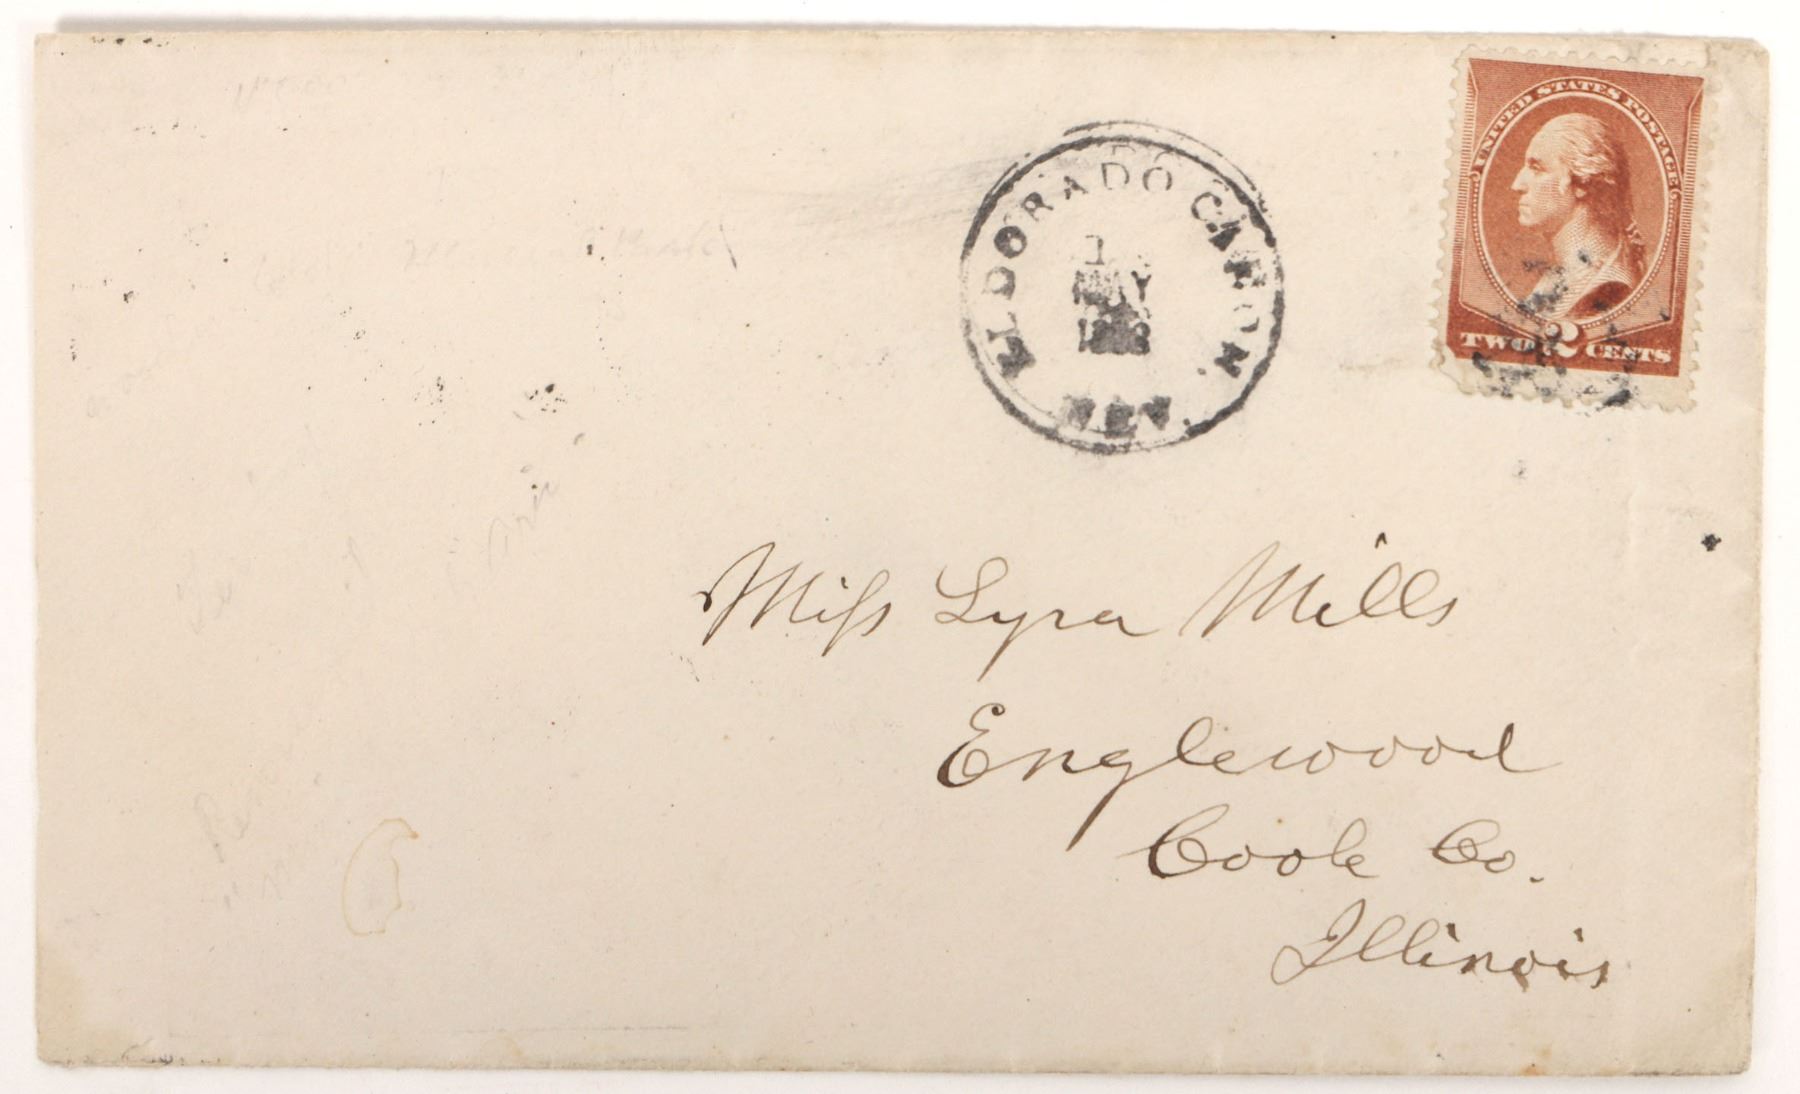 ELDORADO CANON.
MAY
NEV.
UNITED STATES POSTAGE
TWO 2 CENTS
Miss Lyra Mills
Englewood
Cook Co.
Illinois